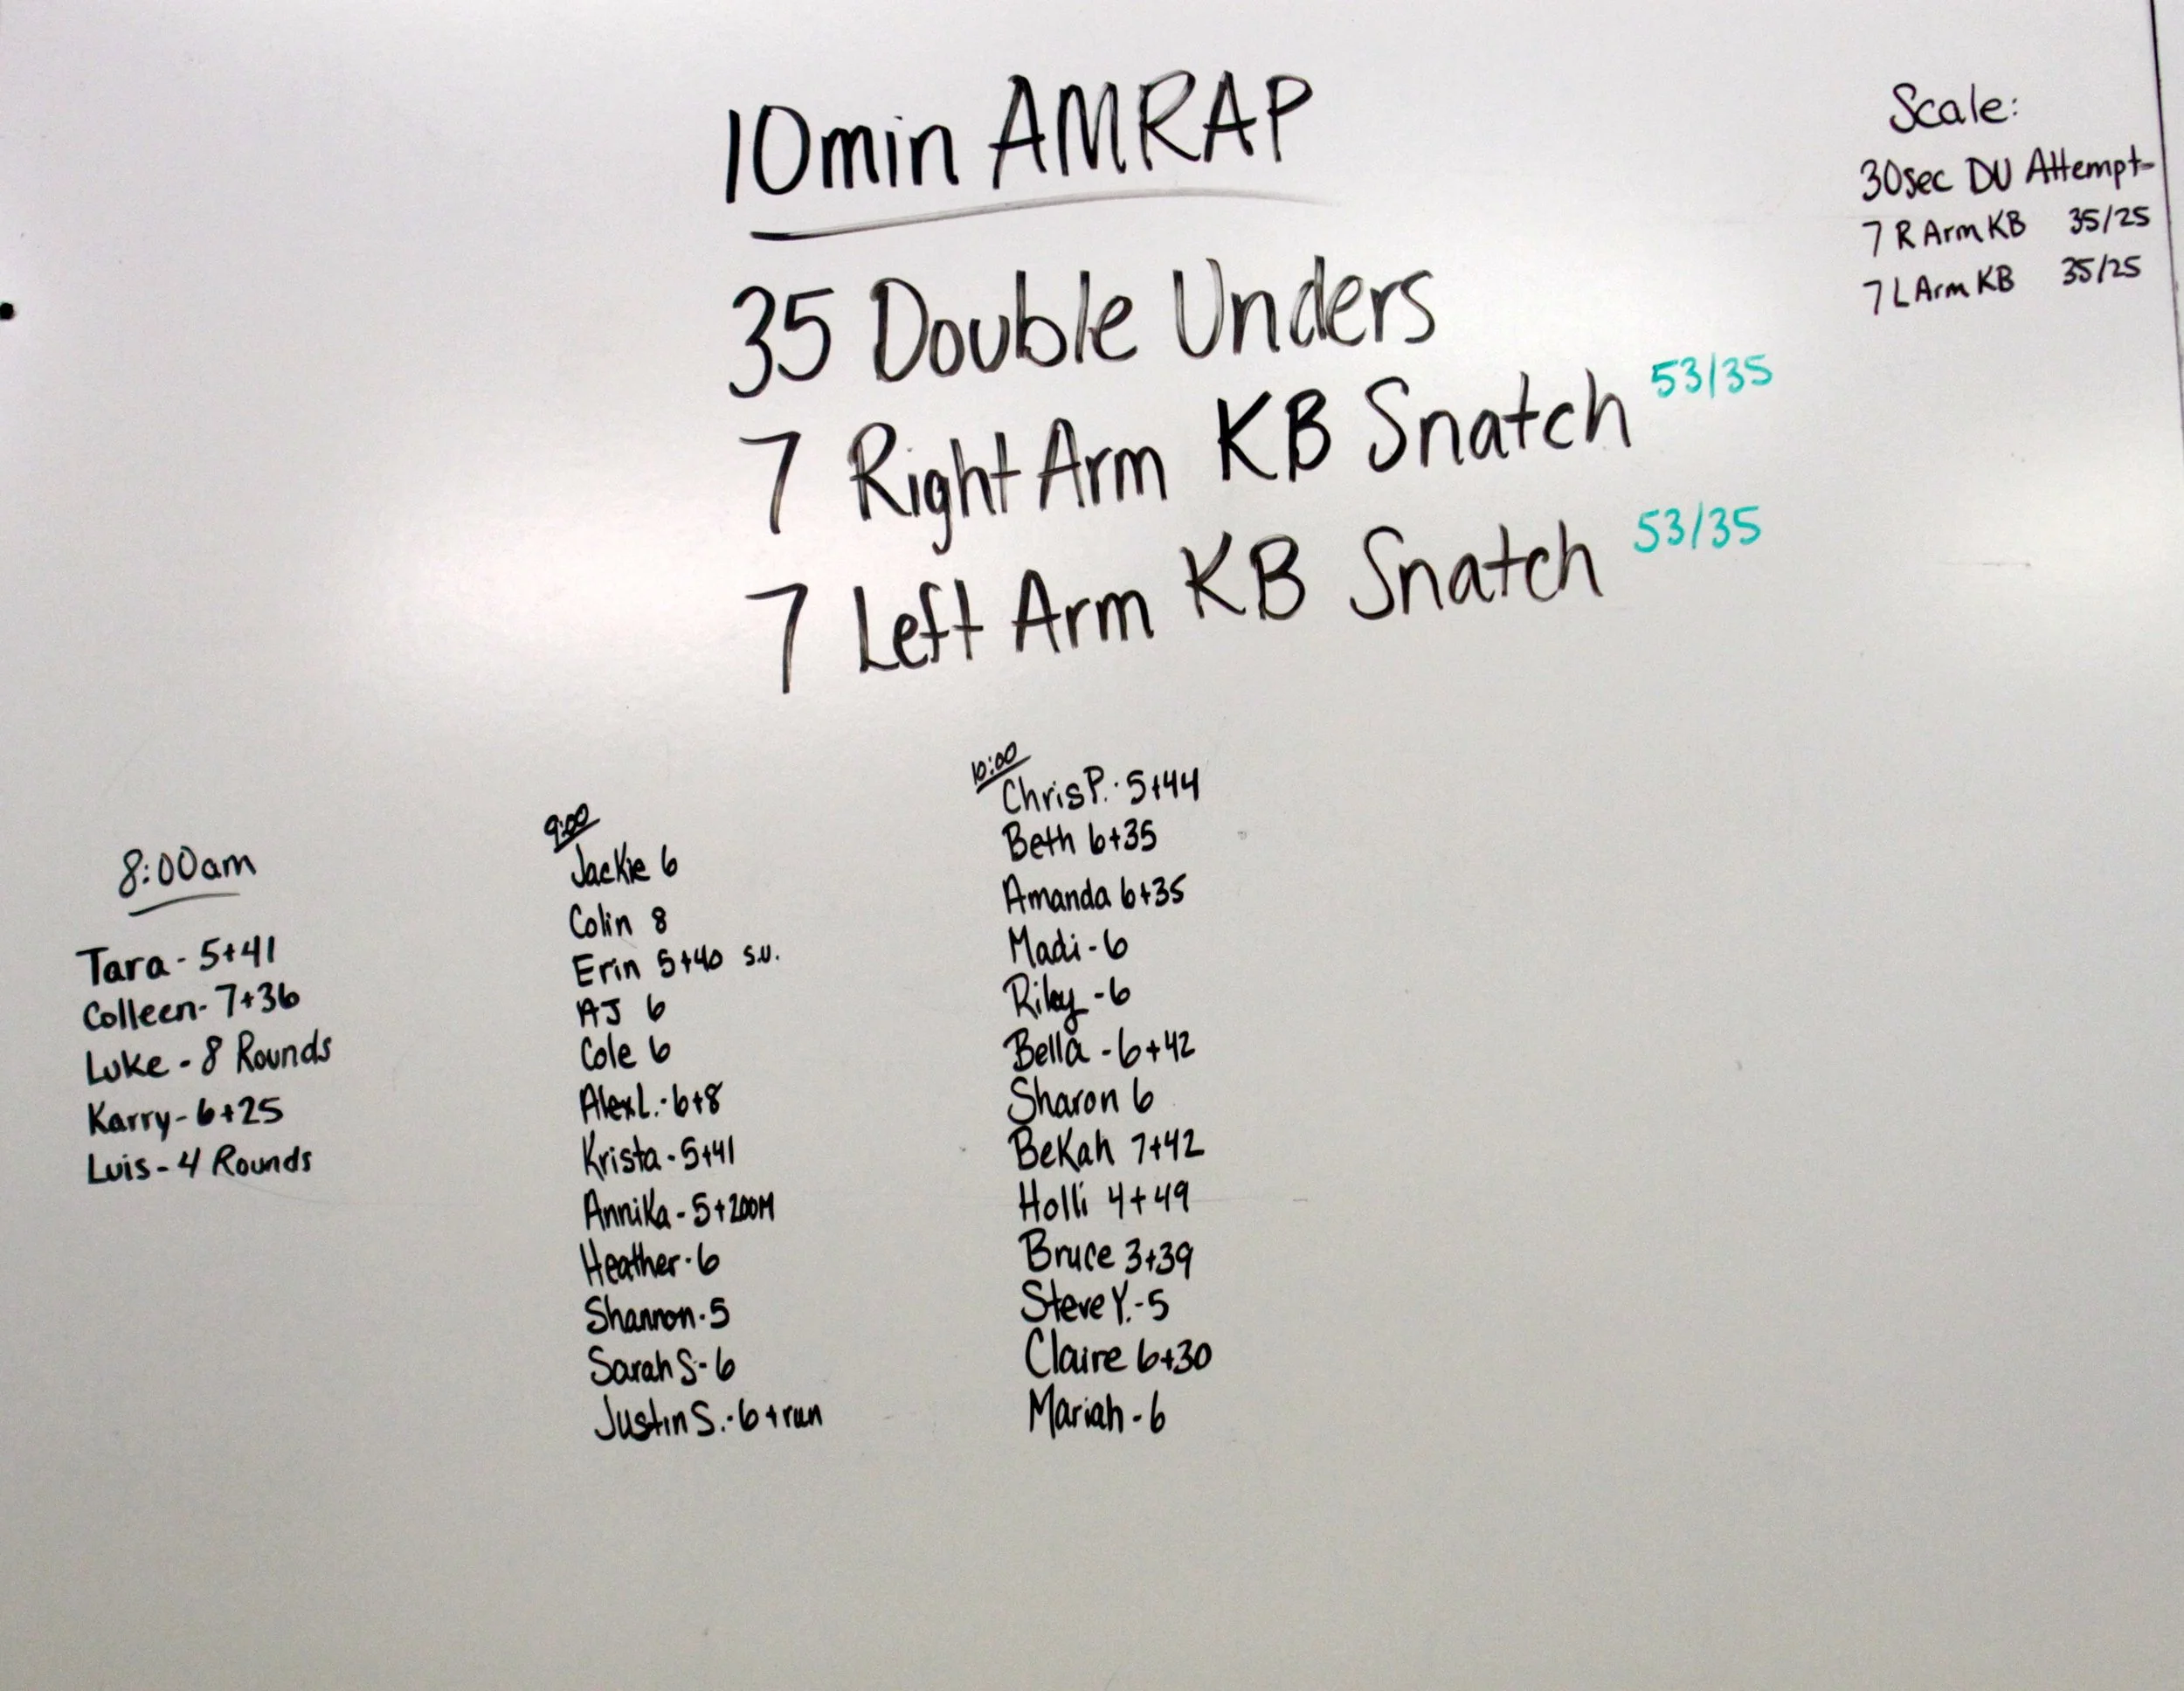 10min AMRAP
35 Double Unders
7 Right Arm KB Snatch 53/35
7 Left Arm KB Snatch 53/35
Scale:
30sec DU Attempt-
7 R Arm KB 35/25
7 L Arm KB 35/25
8:00am
Tara - 5+41
Colleen- 7+36
Luke - 8 Rounds
Karry- 6+25
Luis- 4 Rounds
9:00
Jackie 6
Colin 8
Erin 5+40 s.u.
AJ 6
Cole 6
Alex L. - 6+8
Krista - 5+41
Annika - 5+200M
Heather - 6
Shannon - 5
Sarah S - 6
Justin S. - 6 + run
10:00
Chris P. - 5+44
Beth 6+35
Amanda 6+35
Madi - 6
Riley - 6
Bella - 6+42
Sharon 6
Bekah 7+42
Holli 4+49
Bruce 3+39
Steve Y. - 5
Claire 6+30
Mariah - 6